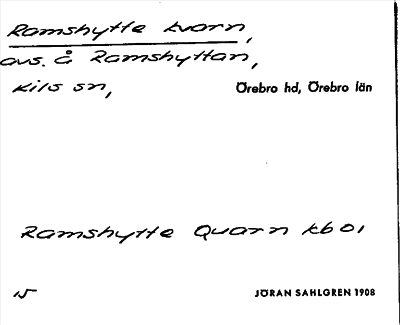 Ramshytte kvarn,
avs. å Ramshyttan,
Kils sn, Örebro hd, Örebro län
Ramshytte Quarn kb 01
15
JÖRAN SAHLGREN 1908